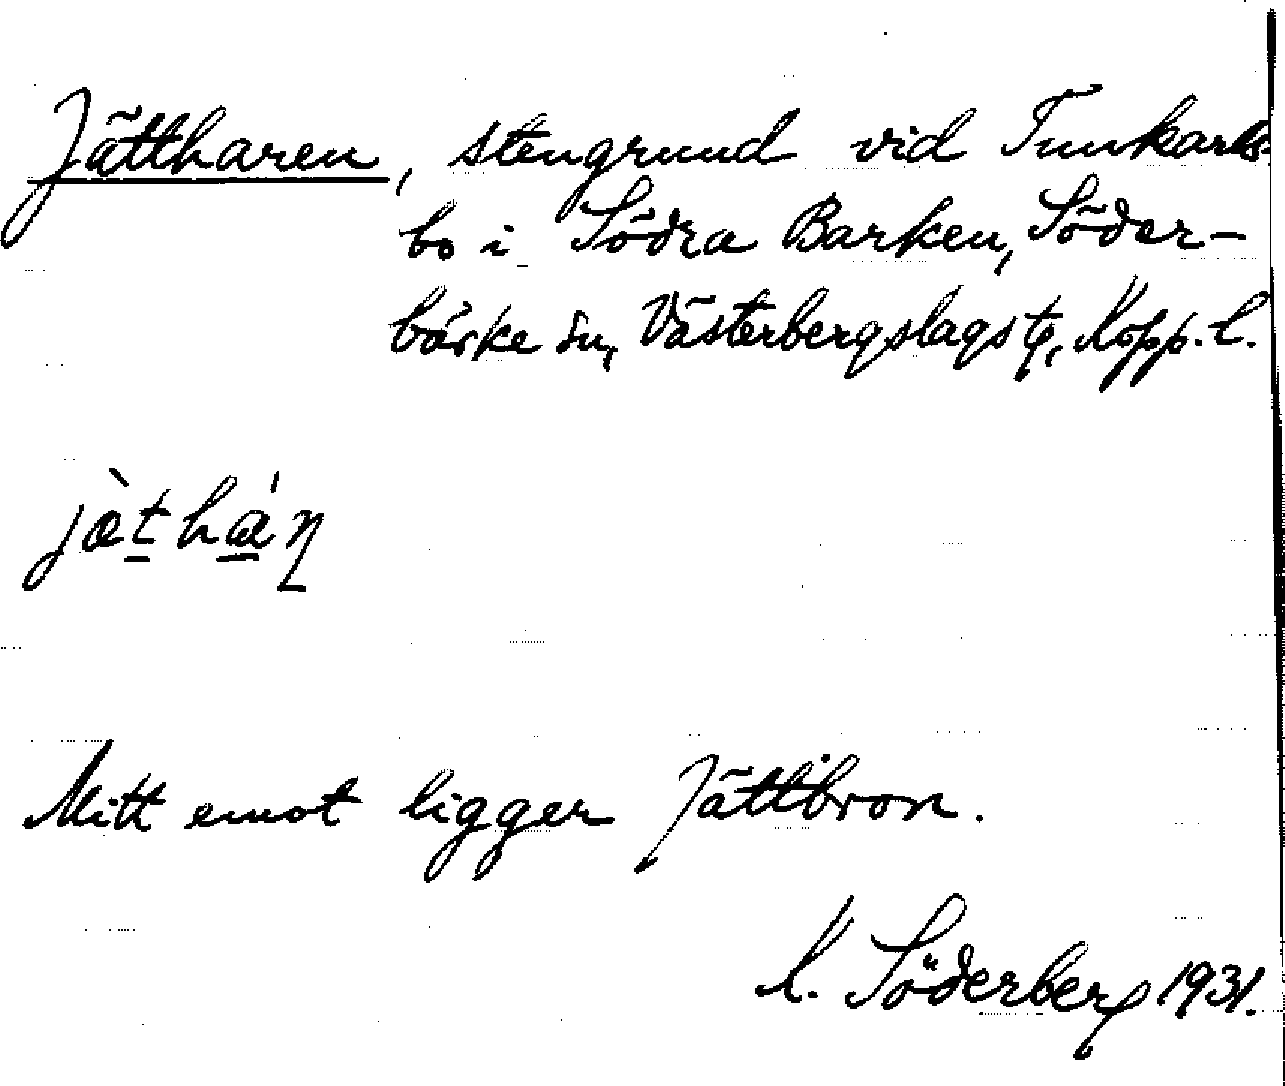 Jättharen, stengrund vid Tunkarls-
bo i Södra Barken, Söder-
bärke sn, Västerbergslags tg, Kopp. l.
jæ̀t hán
Mitt emot ligger Jättbron.
K. Söderberg 1931.